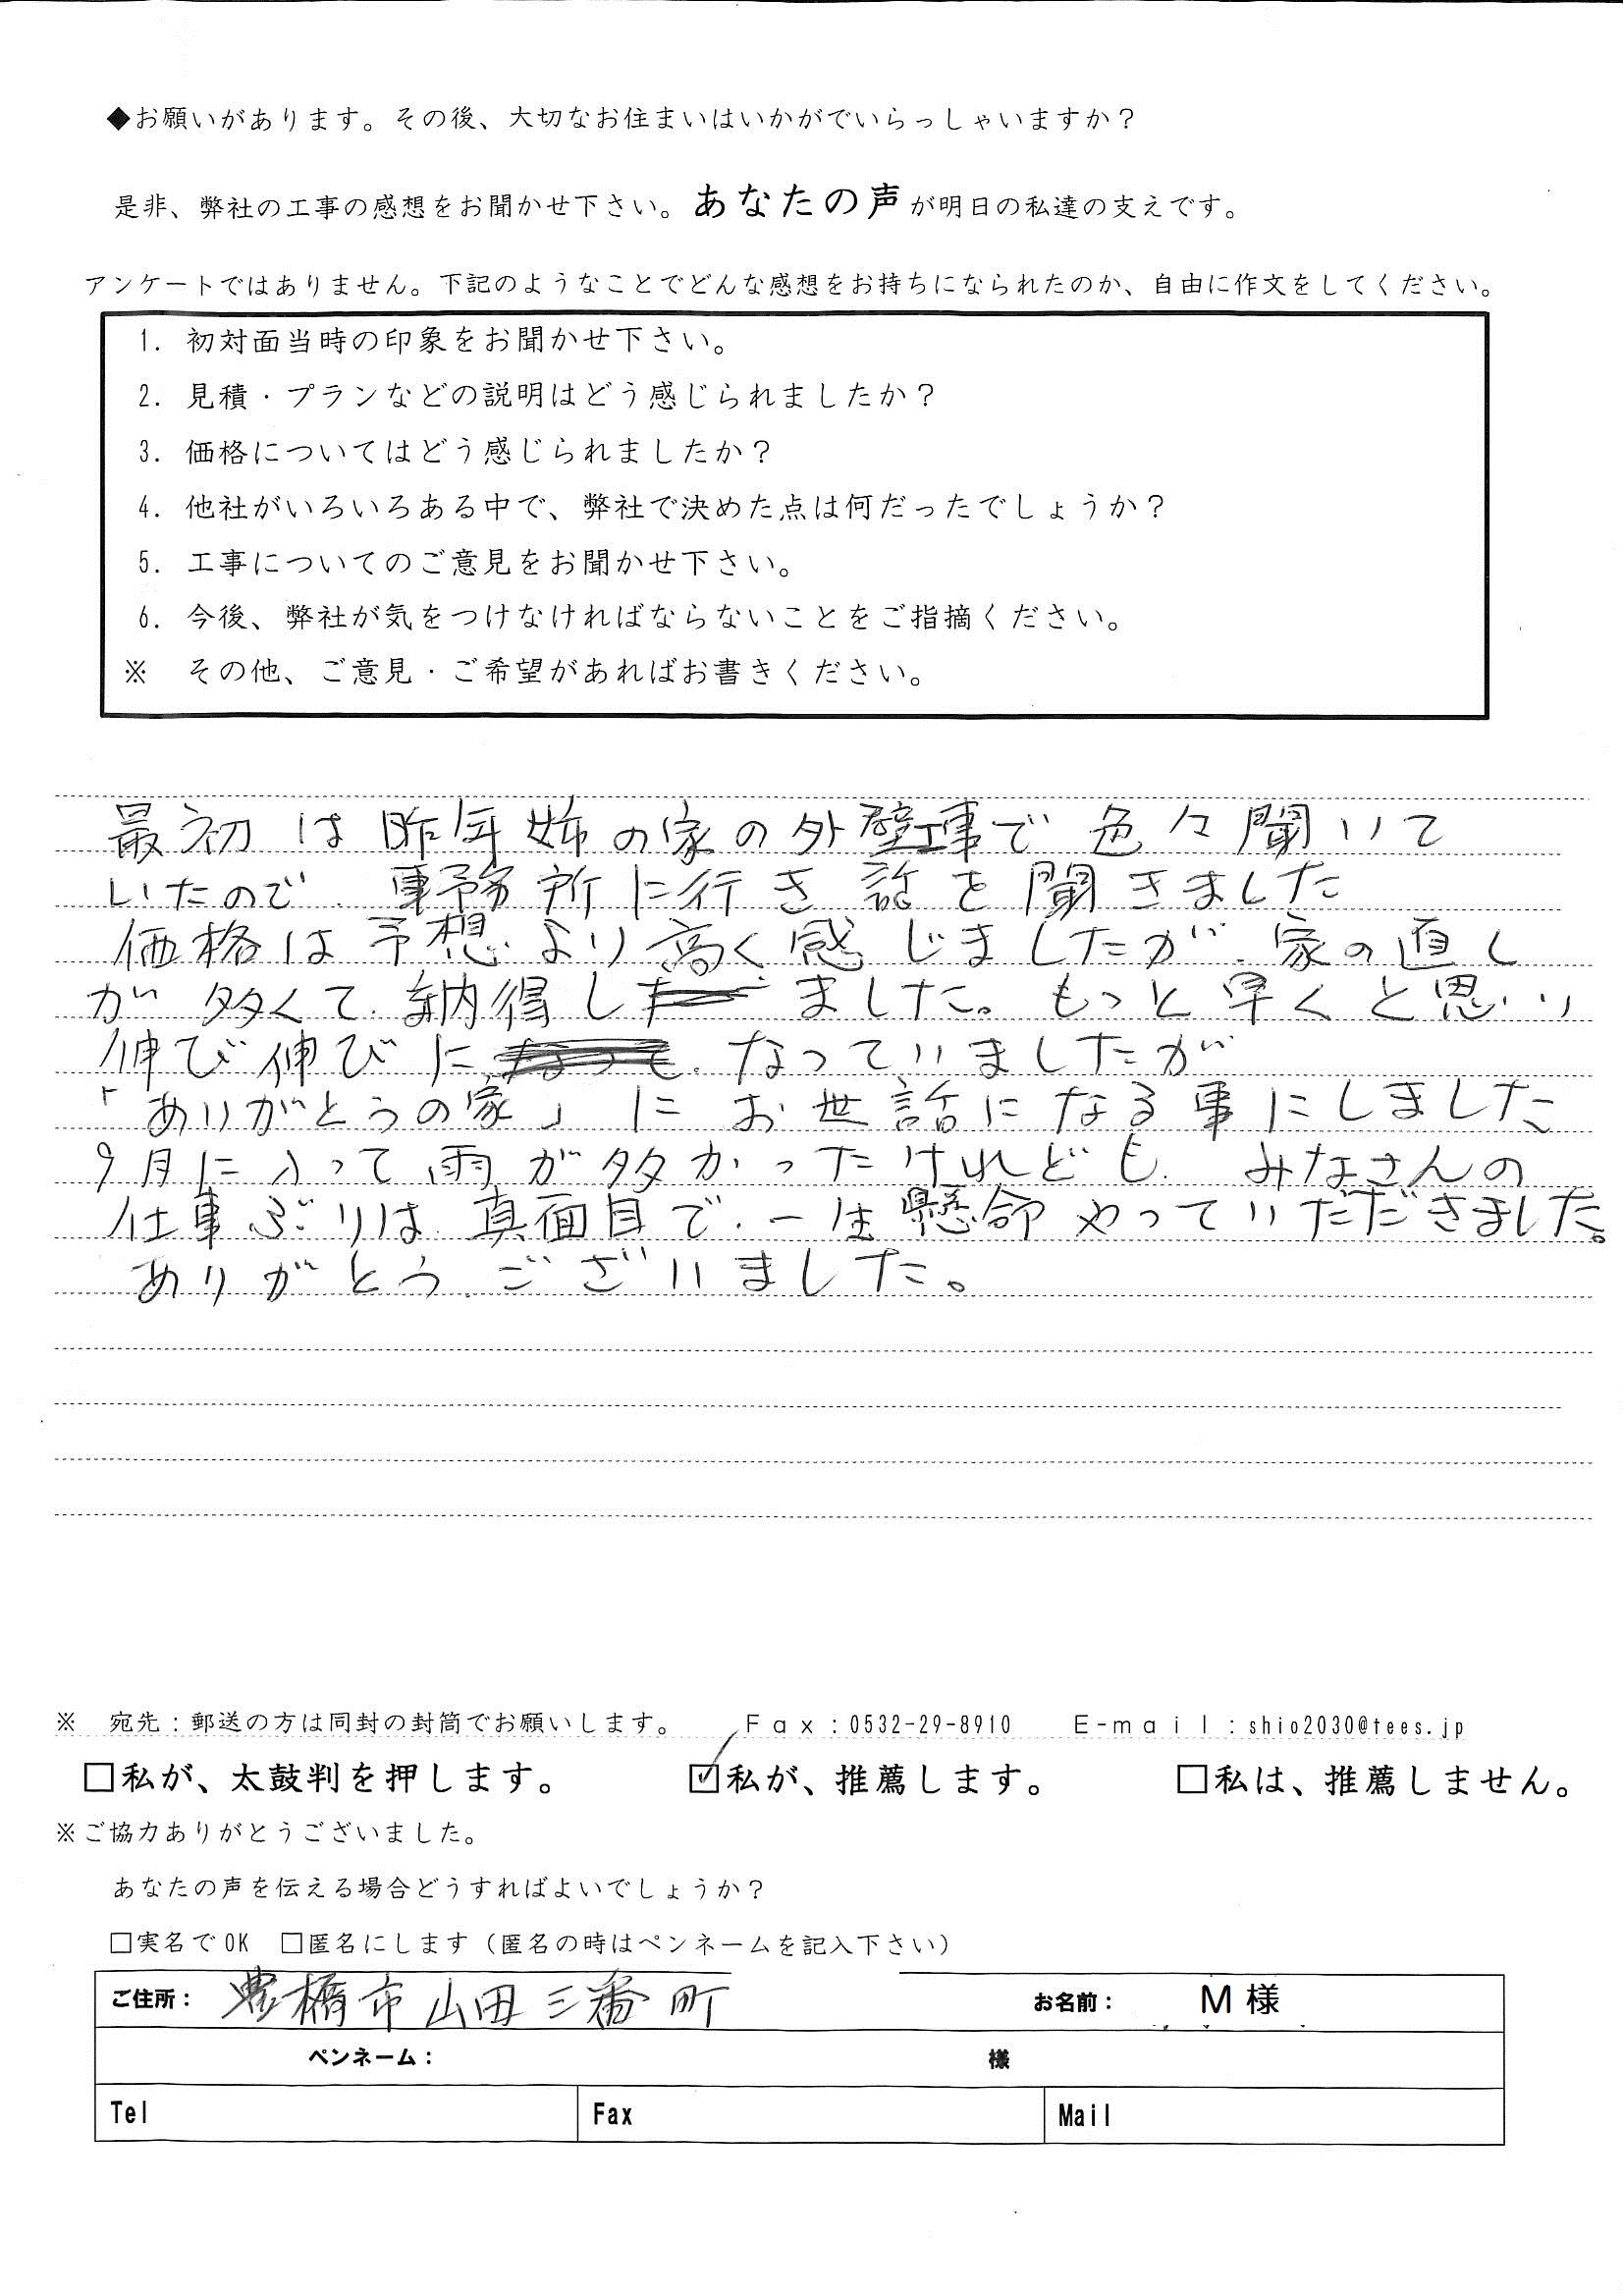 ◆お願いがあります。その後、大切なお住まいはいかがでいらっしゃいますか？
是非、弊社の工事の感想をお聞かせ下さい。あなたの声が明日の私達の支えです。
アンケートではありません。下記のようなことでどんな感想をお持ちになられたのか、自由に作文をしてください。
1. 初対面当時の印象をお聞かせ下さい。
2. 見積・プランなどの説明はどう感じられましたか？
3. 価格についてはどう感じられましたか？
4. 他社がいろいろある中で、弊社で決めた点は何だったでしょうか？
5. 工事についてのご意見をお聞かせ下さい。
6. 今後、弊社が気をつけなければならないことをご指摘ください。
※ その他、ご意見・ご希望があればお書きください。
最初は昨年姉の家の外壁工事で色々聞いて
いたので、事務所に行き話を聞きました
価格は予想より高く感じましたが、家の直し
が多くて納得しました。もっと早くと思い
伸び伸びになっていましたが
「ありがとうの家」にお世話になる事にしました
9月に入って雨が多かったけれども、みなさんの
仕事ぶりは真面目で、一生懸命やっていただだきました。
ありがとうございました。
※ 宛先：郵送の方は同封の封筒でお願いします。 Ｆａｘ：0532-29-8910 Ｅ-ｍａｉｌ：shio2030@tees.jp
□私が、太鼓判を押します。 ☑私が、推薦します。 □私は、推薦しません。
※ご協力ありがとうございました。
あなたの声を伝える場合どうすればよいでしょうか？
□実名でOK □匿名にします（匿名の時はペンネームを記入下さい）
ご住所： 豊橋市山田三番町 お名前： M 様
ペンネーム： 様
Tel Fax Mail